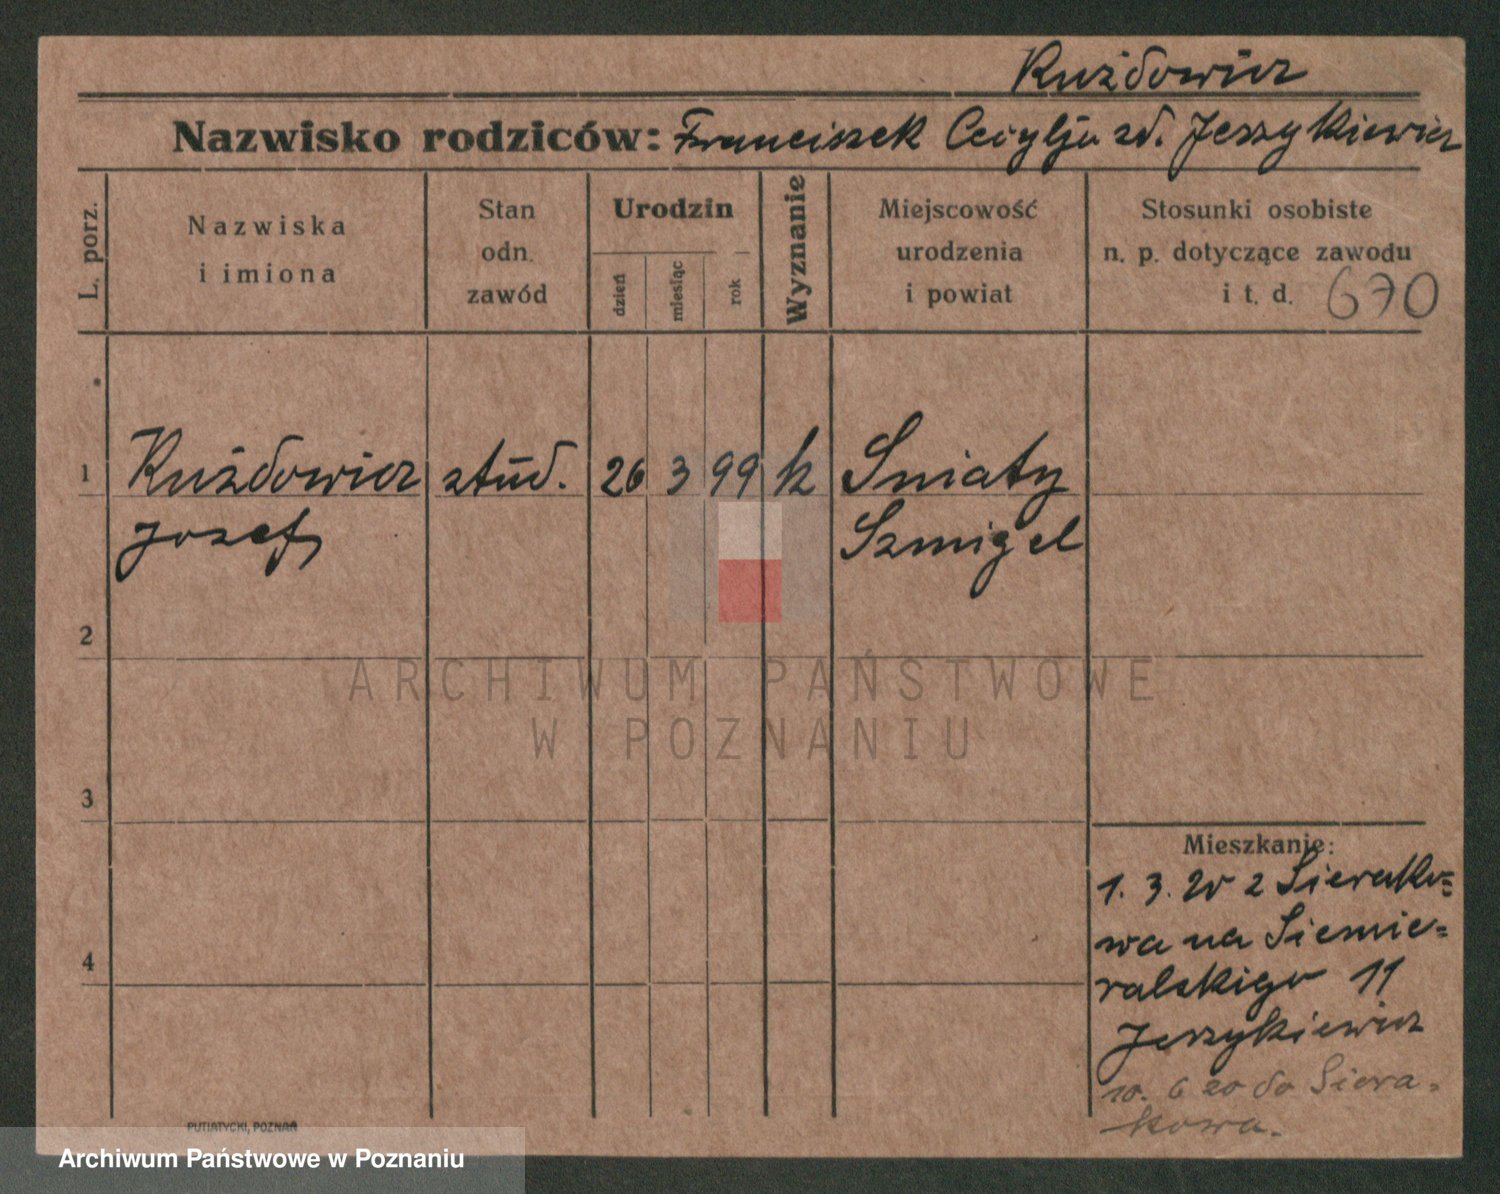 Ruźdowicz
Nazwisko rodziców: Franciszek Cecylja zd. Jerzykiewicz
L. porz.
Nazwiska
i imiona
Stan
odn.
zawód
Urodzin
dzień
miesiąc
rok
Wyznanie
Miejscowość
urodzenia
i powiat
Stosunki osobiste
n. p. dotyczące zawodu
i t. d. 670
1 Ruźdowicz stud. 26 3 99 k Sniaty
Jozef Szmigel
2
ARCHIWUM PAŃSTWOWE
W POZNANIU
3
Mieszkanie:
1. 3. 20 z Sierako=
wa na Siemie=
ralskigo 11
4
Jerzykiewicz
10. 6 20 do Siera-
kowa.
PUTIATYCKI, POZNAŃ
Archiwum Państwowe w Poznaniu